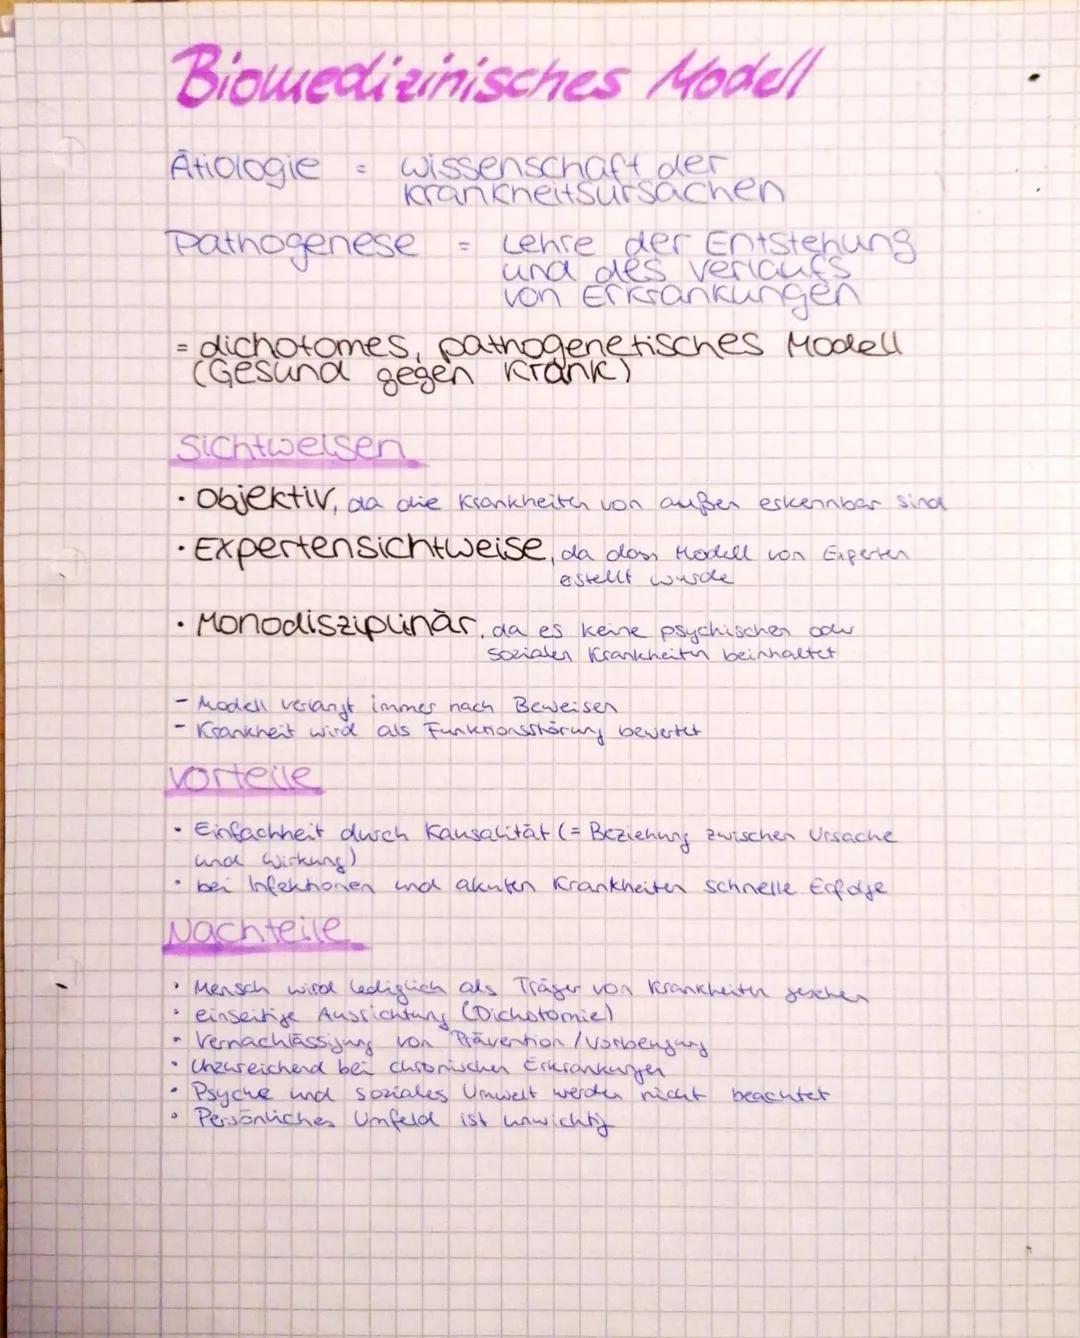 Biomedizinisches Modell
Ätiologie = Wissenschaft der
Krankheitsursachen
Pathogenese = Lehre der Entstehung
und des Verlaufs
von Erkrankungen
= dichotomes, pathogenetisches Modell
(Gesund gegen Krank)
Sichtweisen
· Objektiv, da die Krankheiten von außen erkennbar sind
· Expertensichtweise, da dass Modell von Experten
estellt wurde
· Monodisziplinär, da es keine psychischen oder
sozialen Krankheiten beinhaltet
- Modell verlangt immer nach Beweisen
- Krankheit wird als Funktionsstörung bewertet
Vorteile
· Einfachheit durch Kausalität (= Beziehung zwischen Ursache
und Wirkung)
· bei Infektionen und akuten Krankheiten schnelle Erfolge
Nachteile
· Mensch wird lediglich als Träger von Krankheiten gesehen
· einseitige Ausrichtung (Dichotomie)
· Vernachlässigung von Prävention/Vorbeugung
· Unzureichend bei chronischen Erkrankungen
· Psyche und soziales Umwelt werden nicht beachtet
· Persönliches Umfeld ist unwichtig